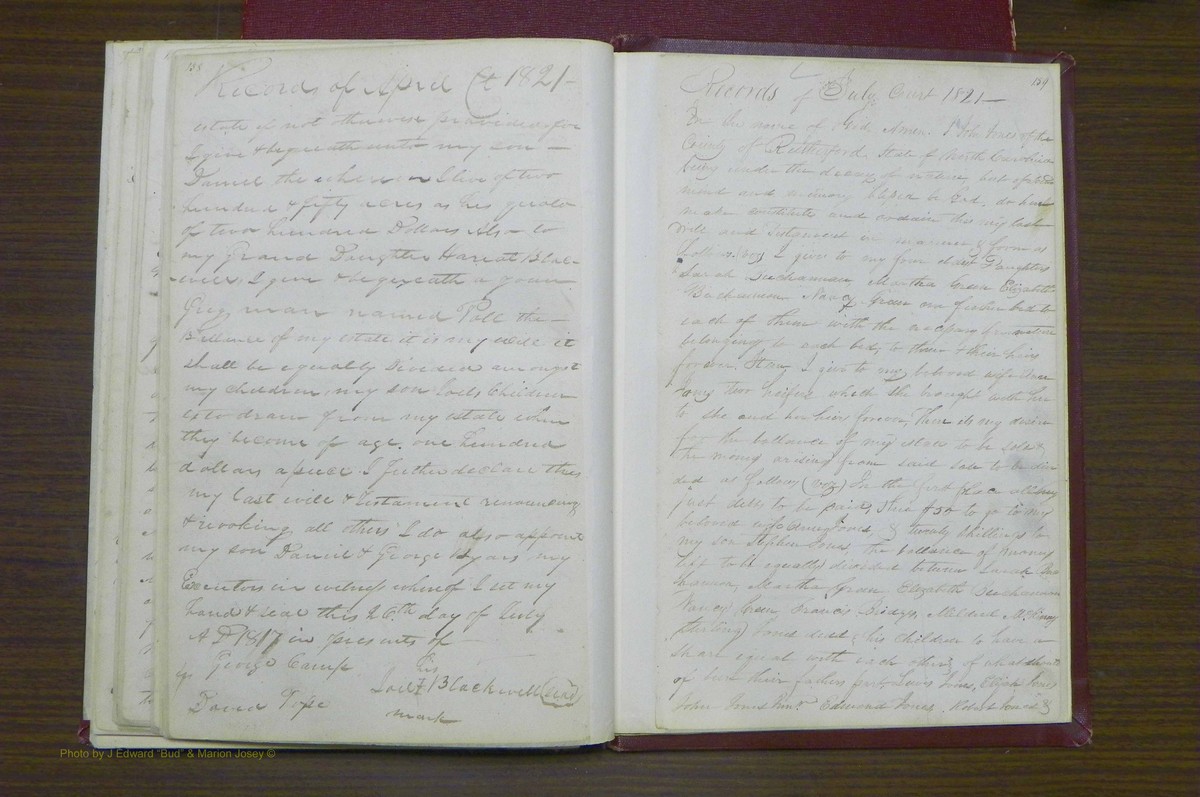 158
Records of April Ct 1821-
estate if not therwise provided for
I give & bequeath unto my son -
Daniel the whereon I live of two
hundred & fifty acres as his quota
of two hundred Dollars Also to
my Grand Daughter Hariot Blac-
-well I give & bequeath a youn
Grey man named Poll the -
Ballance of my estate it is my will it
shall be equally Divided amongst
my children my son Joels Children
is to draw from my estate when
they become of age. one hundred
dollars a piece I further declare this
my last will & testament renouncing
& revoking all others I do also appoint
my son Daniel & George Byars my
Executors in witness whereof I set my
hand & seal this 26th day of July
A D 1817 in presents of -
George Camp his
Joel Blackwell (seal)
David Pope mark
159
Records of July Court 1821-
In the name of God Amen. I John Jones of the
County of Rutherford State of North Carolina
being under the decay of nature but of
mind and memory blessed be God. do here
make constitute and ordain this my last
will and testament in manner & form as
follows (viz) I give to my four oldest Daughters
Sarah Buchannan Martha Green Elizabeth
Buchannon Nancy Green one feather bed to
each of them with the necessary furniture
belonging to each bed, to them & their heirs
forever. Item I give to my beloved wife
Jones two heifers which she brought with her
to she and her heirs forever, Then its my desire
for the ballance of my estate to be sold &
the money arising from said sale to be divi
ded as follows (viz) In the first place all my
just debts to be paid, to go to my
beloved wife Jones, & twenty shillings to
my son Stephen Jones the ballance of money
left to be equally divided between Sarah Buc
hannon, Martha Green Elizabeth Buchannon
Nancy Green Francis Bridges, Mildred McKinny
Sterling Jones dead, his children to have a
share equal with each other, of what
of but their fathers part Lewis Jones, Elijah Jones
John Jones Edmund Jones. Robert Jones &
Photo by J Edward "Bud" & Marion Josey ©